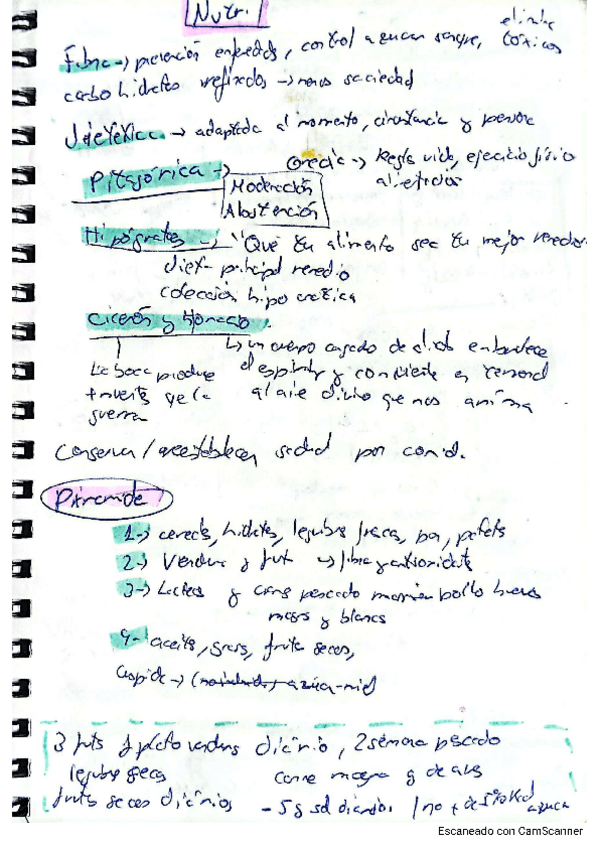 Nutri.
Fibra → prevención enfermedades, control azucar sangre, elimina tóxicos
carbohidratos refinados → menos saciedad
Dietética → adaptada al momento, circunstancia y persona
Pitagórica → Grecia → Regla vida, ejercicio físico
Moderación
Abstención
Hipógrates → "Que tu alimento sea tu mejor remedio
dieta principal remedio
colección hipocratica
Cicerón y Horacio.
↳ un cuerpo cargado de embrutece
La boca produce el espíritu y convierte en
+ muerte que la al aire divino que nos anima
guerra
Conservar / reestablecer salud por comid.
Pirámide
1→ cereals, hidratos, legumbres, pan,
2→ Verdura y fruta → fibra y antioxidante
3→ Lacteos y carne pescado pollo huevos
magras y blancas
4- aceite, grasas, frutos secos,
Cúspide → azúcar-miel
3 futs y plato verduras diario, 2 semana pescado
legumbres secas carne magra y de aves
frutos secos diarios - 5g sal diarios / no + de 5% kcal azucar
Escaneado con CamScanner